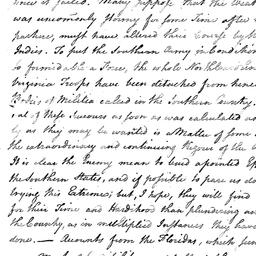 since it sailed. Many suppose that the Weat
was uncommonly stormy for some Time after
parture, must have altered their Course by
Indies. To put the Southern Army in Condition
so formidable a Force, the whole Northern
Virginia Troops have been detached from hence
Bodies of Militia called in the Southern Country.
of these Succours as soon as was calculated
ly as they may be wanted is a Matter of some
the extraordinary and continuing Rigour of the
It is clear the Enemy mean to bend a pointed Ef
the Southern States, and if possible to pare us do
trying this Extreme; but, I hope, they will find
for their Time and Hardihood than plundering an
the Country, as in multiplied Instances they have
done. — Accounts from the Floridas, which